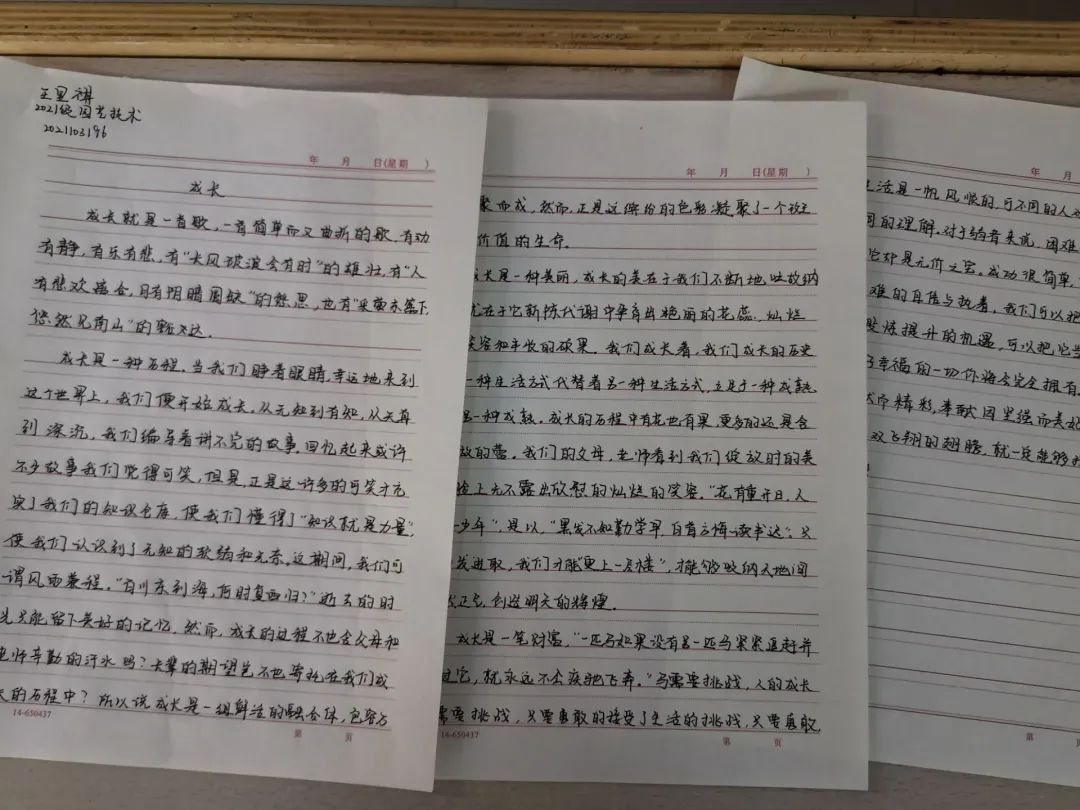 王里祺
2021级园艺技术
2021103196
年 月 日(星期 )
成长
成长就是一首歌,一首简单而又曲折的歌,有动
有静,有乐有悲,有“长风破浪会有时”的雄壮,有“人
有悲欢离合,月有阴晴圆缺”的愁思,也有“采菊东篱下,
悠然见南山”的豁达.
成长是一种历程.当我们睁着眼睛,幸运地来到
这个世界上,我们便开始成长.从无知到有知,从天真
到深沉,我们编导着讲不完的故事.回忆起来或许
不少故事我们觉得可笑,但是,正是这许多的可笑才充
实了我们的知识仓库,使我们懂得了“知识就是力量”,
使我们认识到了无知的软弱和无奈.这期间,我们可
谓风雨兼程.“百川东到海,何时复西归?”逝去的时
光只能留下美好的记忆,然而,成长的过程不包含父母和
老师辛勤的汗水吗?长辈的期望岂不也寄托在我们成
长的历程中?所以说成长是一组鲜活的融合体,包容万
14-650437
第 页
年 月 日(星期 )
聚而成,然而,正是这缤纷的色彩凝聚了一个较
价值的生命.
成长是一种美丽,成长的美在于我们不断地吐故纳
就在于它新陈代谢中孕育出艳丽的花蕊,灿烂
笑容和丰收的硕果.我们成长着,我们成长的历史
一种生活方式代替着另一种生活方式,立足于一种成熟
另一种成熟.成长的历程中有花也有果,更多的还是含
放的蕾.我们的父母,老师看到我们绽放时的美
脸上无不露出欣慰的灿烂的笑容.“花有重开日,人
少年”,是以,“黑发不知勤学早,白首方悔读书迟”;只
进取,我们才能“更上一层楼”,才能够吸纳天地间
正气,创造明天的辉煌.
成长是一笔财富,“一匹马如果没有另一匹马紧紧追赶并
过它,就永远不会疾驰飞奔.”马需要挑战,人的成长
需要挑战,只要勇敢的接受了生活的挑战,只要勇敢
14-650437
第 页
年 月
生活是一帆风顺的,可不同的人对
同的理解.对于弱者来说,困难
它却是无价之宝.成功很简单,
难的自信与执着,我们可以把
锻炼提升的机遇,可以把它当
幸福的一切你将会完全拥有
精彩,奉献因坚强而美好
双飞翔的翅膀,就一定能够
第